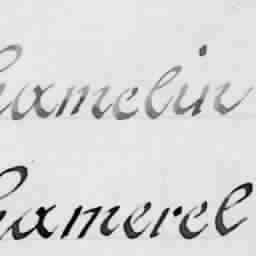 hamelin
hamerel